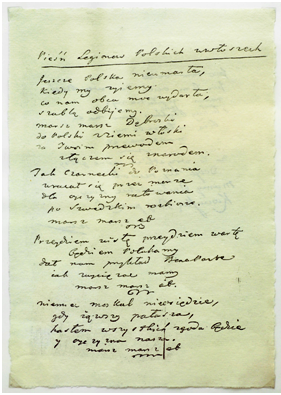 Pieśń Legionow Polskich we włoszech
Jeszcze Polska nieumarła,
kiedy my żyjemy
co nam obca moc wydarła,
szablą odbijemy.
marsz marsz Dąbroski
do Polski z ziemi włoski
za Twoim przewodem
złączem się z narodem.
Jak Czarnecki do Poznania
wracał się przez morze
dla ojczyzny ratowania
po szwedzkim rozbiorze.
marsz marsz etc
Przejdziem wisłę przejdziem wartę
będziem Polakamy
dał nam przykład Bonaparte
jak zwycięzac mamy
marsz marsz etc.
niemiec moskal nieosiędzie,
gdy jąwszy pałasza,
hasłem wszystkich zgoda będzie
y ojczyzna nasza.
marsz marsz etc